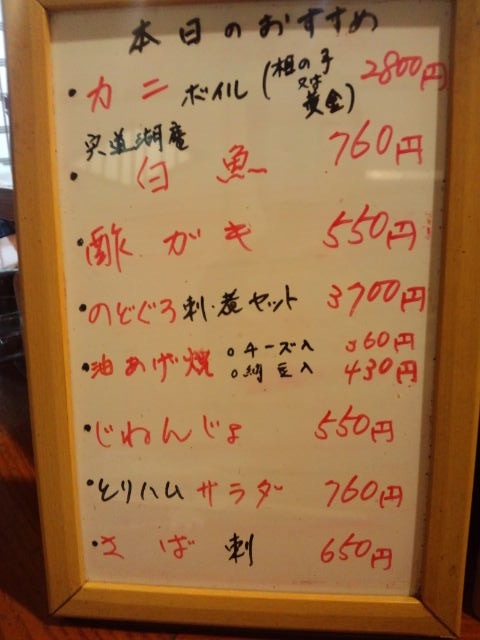 本日のおすすめ
・カニ ボイル (親の子 又は 黄金) 2800円
宍道湖産
・白魚 760円
・酢がき 550円
・のどぐろ 刺・煮セット 3700円
・油あげ焼 ○チーズ入 360円
○納豆入 430円
・じねんじょ 550円
・とりハム サラダ 760円
・さば 刺 650円